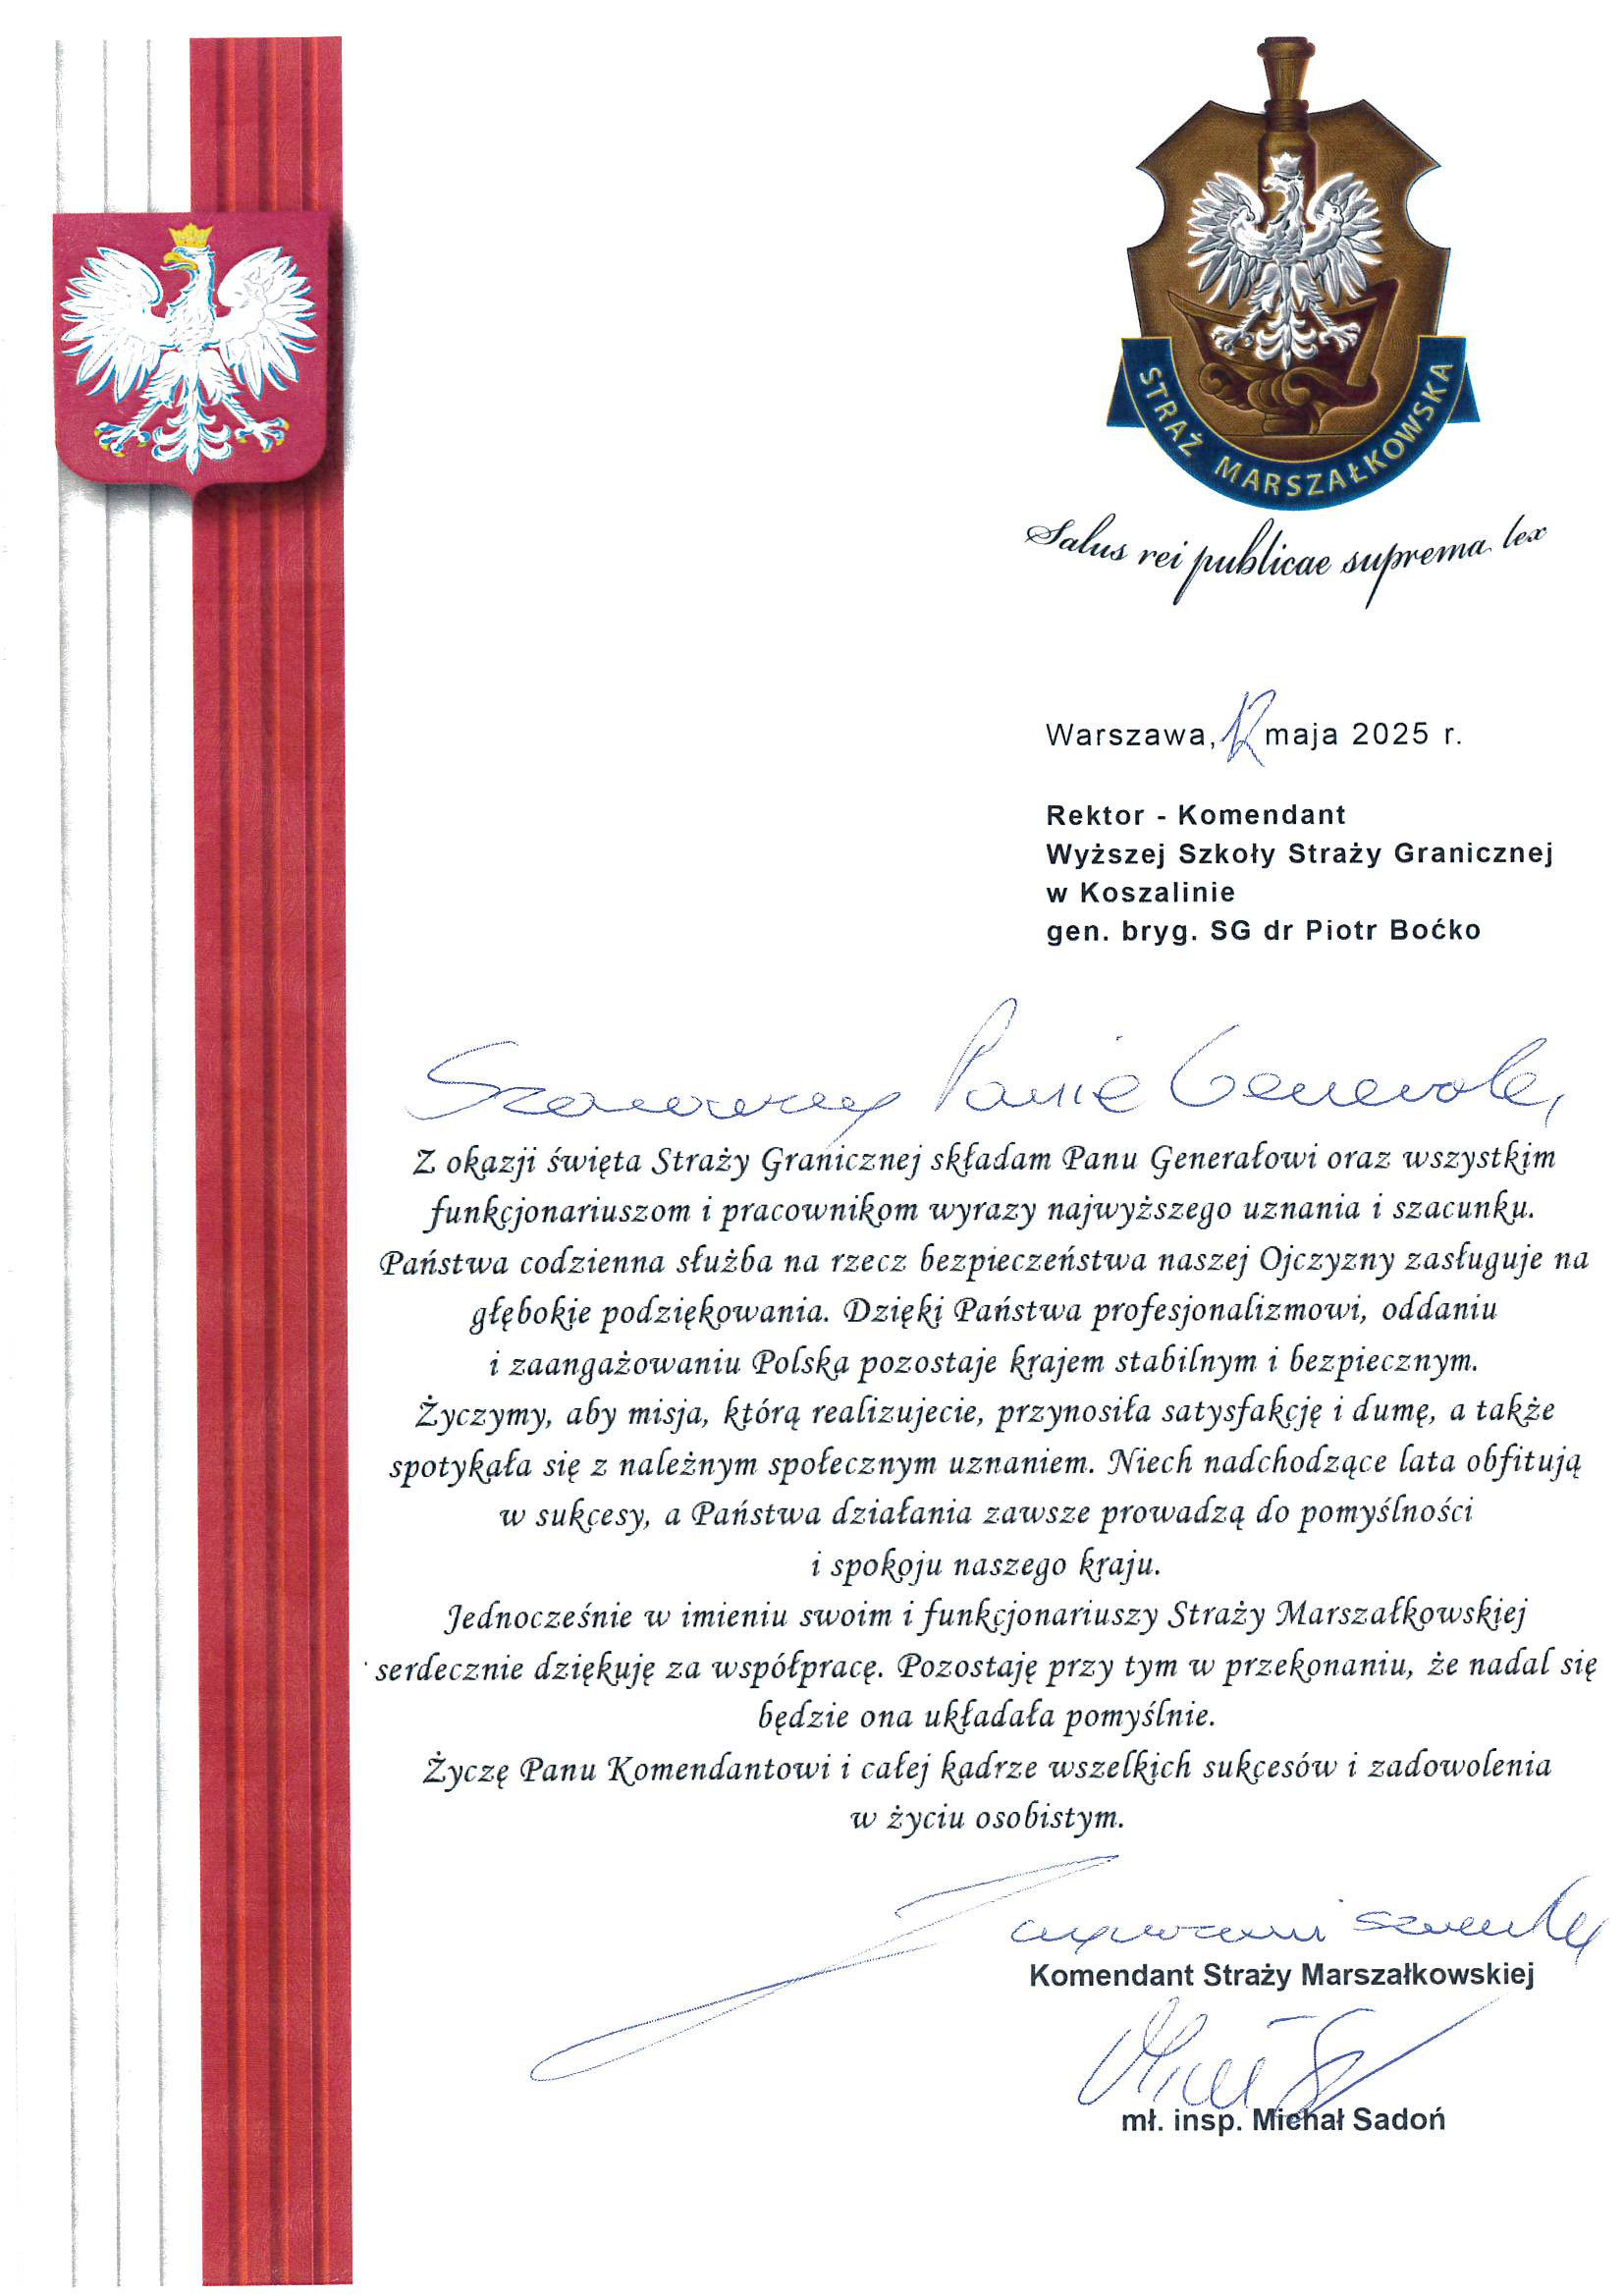 STRAŻ MARSZAŁKOWSKA
Salus rei publicae suprema lex
Warszawa, 12 maja 2025 r.
Rektor - Komendant
Wyższej Szkoły Straży Granicznej
w Koszalinie
gen. bryg. SG dr Piotr Boćko
Szanowny Panie Generale,
Z okazji święta Straży Granicznej składam Panu Generałowi oraz wszystkim
funkcjonariuszom i pracownikom wyrazy najwyższego uznania i szacunku.
Państwa codzienna służba na rzecz bezpieczeństwa naszej Ojczyzny zasługuje na
głębokie podziękowania. Dzięki Państwa profesjonalizmowi, oddaniu
i zaangażowaniu Polska pozostaje krajem stabilnym i bezpiecznym.
Życzymy, aby misja, którą realizujecie, przynosiła satysfakcję i dumę, a także
spotykała się z należnym społecznym uznaniem. Niech nadchodzące lata obfitują
w sukcesy, a Państwa działania zawsze prowadzą do pomyślności
i spokoju naszego kraju.
Jednocześnie w imieniu swoim i funkcjonariuszy Straży Marszałkowskiej
serdecznie dziękuję za współpracę. Pozostaję przy tym w przekonaniu, że nadal się
będzie ona układała pomyślnie.
Życzę Panu Komendantowi i całej kadrze wszelkich sukcesów i zadowolenia
w życiu osobistym.
Z wyrazami szacunku
Komendant Straży Marszałkowskiej
mł. insp. Michał Sadoń